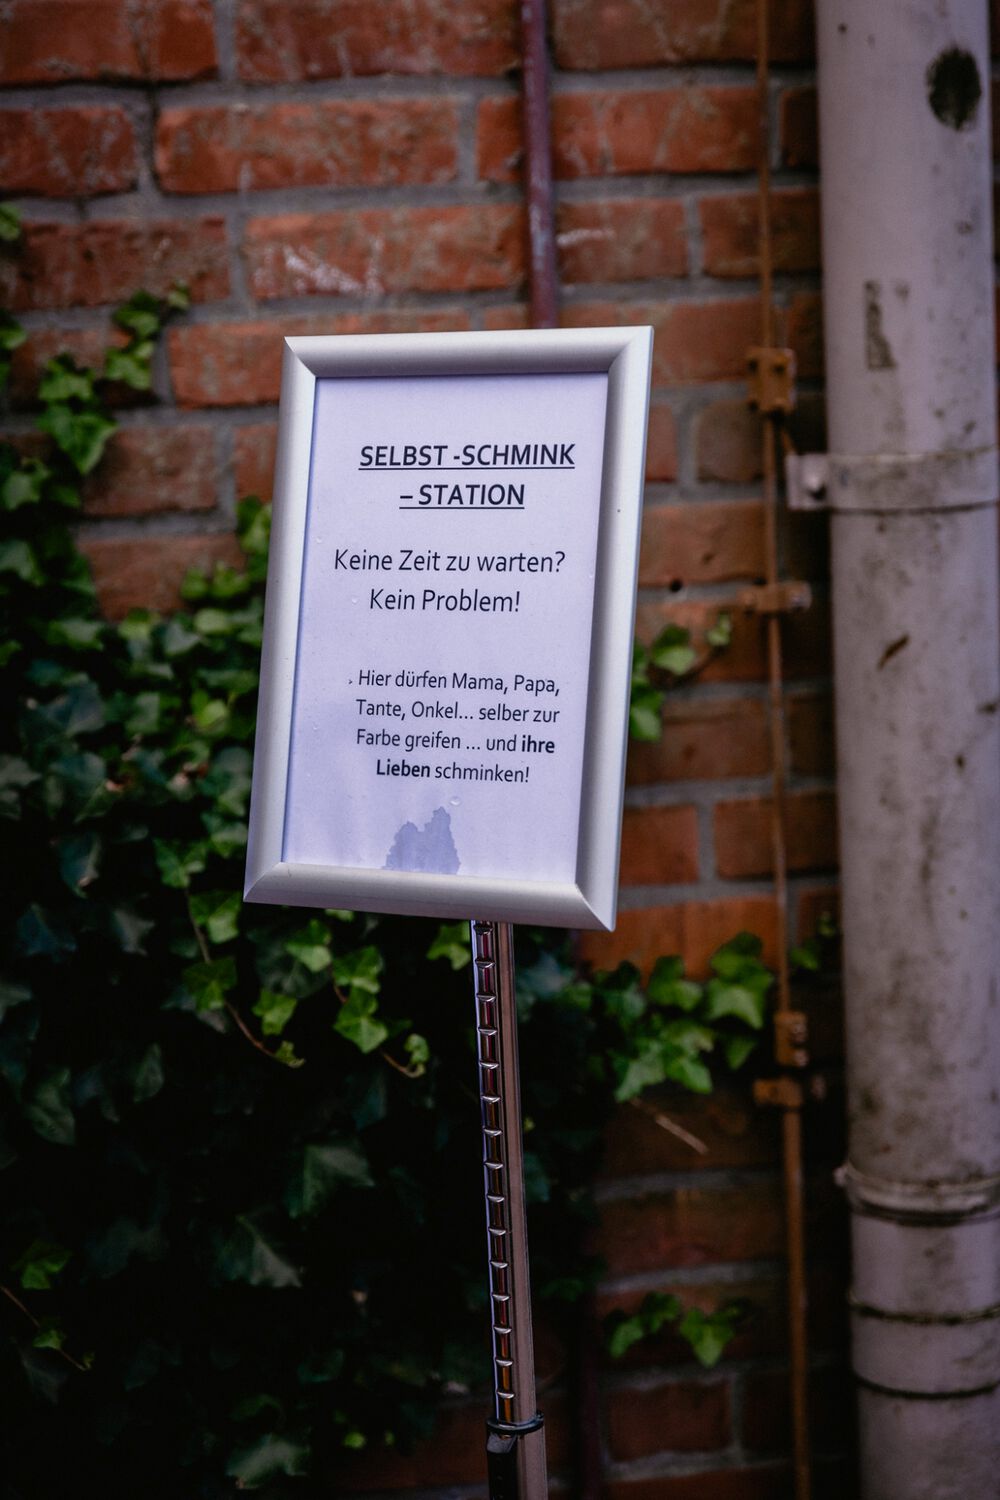 SELBST -SCHMINK
– STATION
Keine Zeit zu warten?
Kein Problem!
Hier dürfen Mama, Papa,
Tante, Onkel... selber zur
Farbe greifen ... und ihre
Lieben schminken!